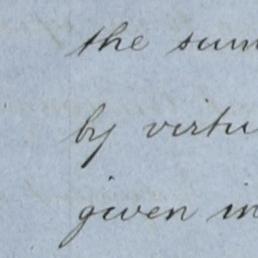 the sum
by virtu
given in